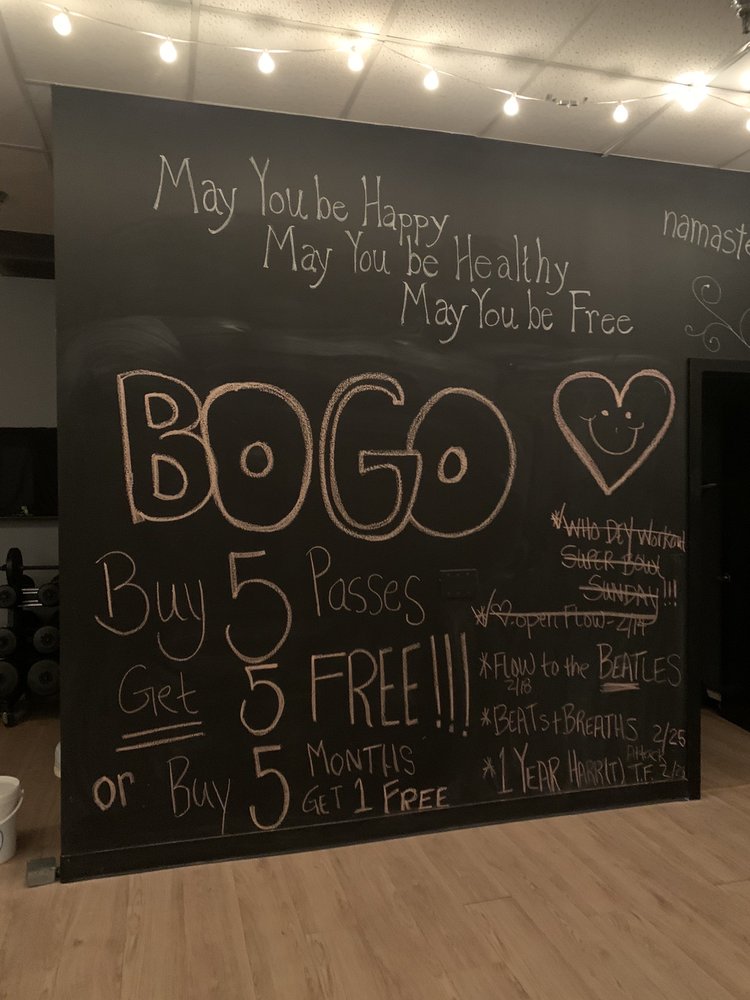 May You be Happy
May You be Healthy
May You be Free
namaste
BOGO
Buy 5 Passes
Get 5 FREE!!!
or Buy 5 MONTHS
GET 1 FREE
*WHO DEY Workout
SUPER BOWL
SUNDAY!!!
open Flow - 2/14
*FLOW to the BEATLES
2/18
*BEATS + BREATHS 2/25
*1 YEAR HARR(T)
T.F.